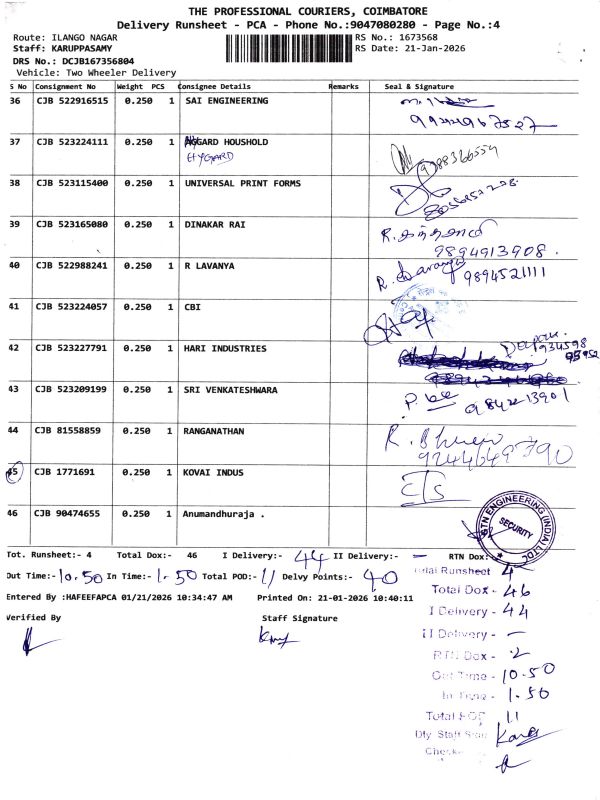 THE PROFESSIONAL COURIERS, COIMBATORE
Delivery Runsheet - PCA - Phone No.:9047080280 - Page No.:4
Route: ILANGO NAGAR
RS No.: 1673568
Staff: KARUPPASAMY
RS Date: 21-Jan-2026
DRS No.: DCJB167356804
Vehicle: Two Wheeler Delivery
S No Consignment No Weight PCS Consignee Details Remarks Seal & Signature
36 CJB 522916515 0.250 1 SAI ENGINEERING
37 CJB 523224111 0.250 1 GARD HOUSHOLD
HYGARD
9788366554
38 CJB 523115400 0.250 1 UNIVERSAL PRINT FORMS
39 CJB 523165080 0.250 1 DINAKAR RAI
9894913908.
40 CJB 522988241 0.250 1 R LAVANYA R. Lavanya 9894521111
41 CJB 523224057 0.250 1 CBI
42 CJB 523227791 0.250 1 HARI INDUSTRIES
43 CJB 523209199 0.250 1 SRI VENKATESHWARA
9842213901
44 CJB 81558859 0.250 1 RANGANATHAN
9244649790
45 CJB 1771691 0.250 1 KOVAI INDUS
46 CJB 90474655 0.250 1 Anumandhuraja .
BTN ENGINEERING (INDIA) LTD.
SECURITY
Tot. Runsheet:- 4 Total Dox:- 46 I Delivery:- 44 II Delivery:- — RTN Dox:-
Out Time:- 10.50 In Time:- 1.50 Total POD:- 11 Delvy Points:- 40
Entered By :HAFEEFAPCA 01/21/2026 10:34:47 AM Printed On: 21-01-2026 10:40:11
Verified By Staff Signature
Total Runsheet 4
Total Dox - 46
I Delivery - 44
II Delivery - —
RTN Dox - 2
Out Time - 10.50
In Time - 1.50
Total POD 11
Dly. Staff Sign
Check